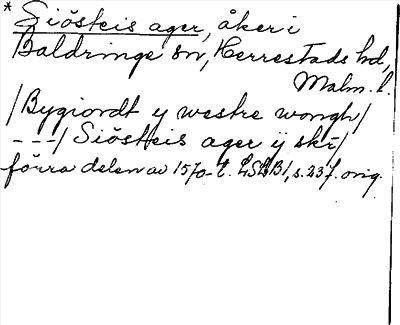 * Siösteis ager, åker i
Baldringe sn, Herrestads hd,
Malm. l.
/Bygiordt y westre wongh/
---/ Siösteis ager ÿ skr/
förra delen av 1570-t. LSLB1, s. 237. orig.